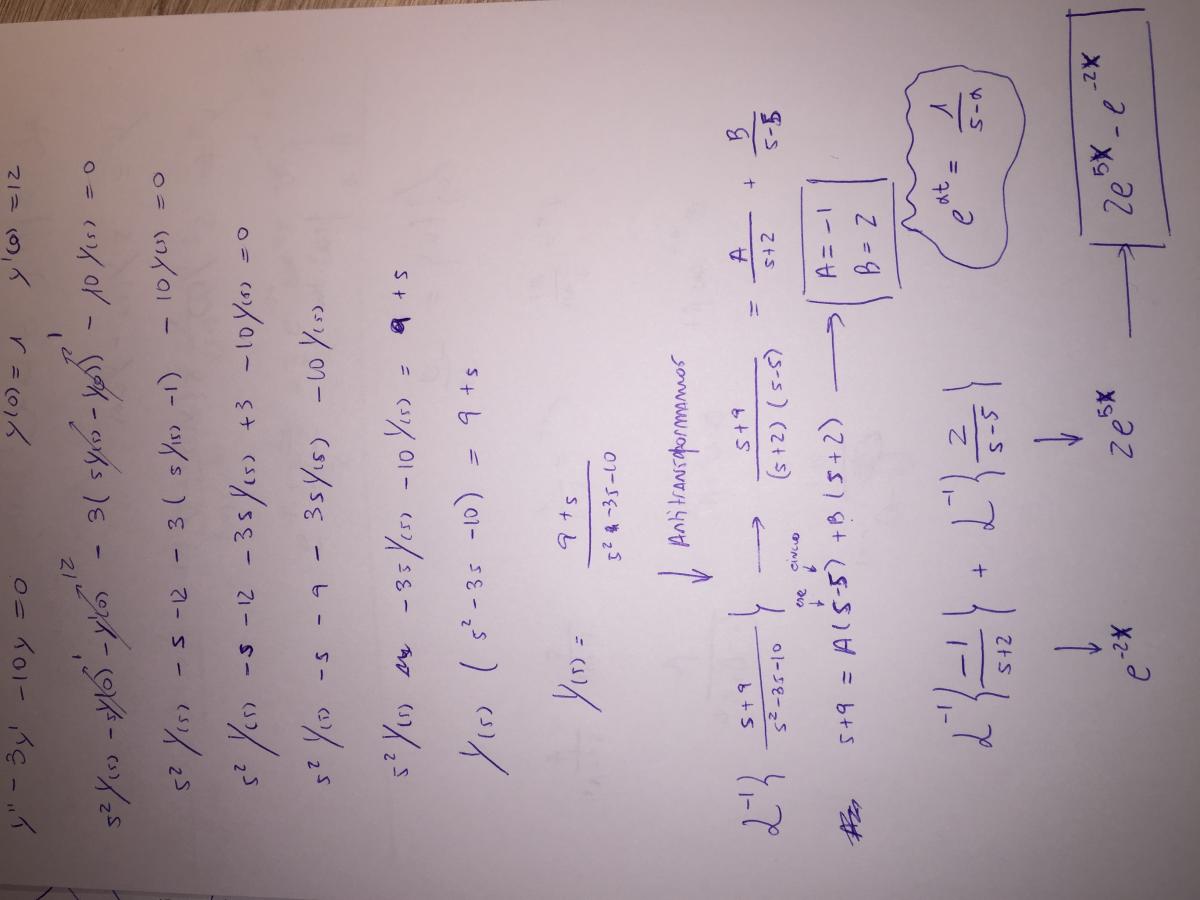 y'' - 3y' - 10y = 0 y(0) = 1 y'(0) = 12
s² Y(s) - sy(0) - y'(0) - 3(sY(s) - y(0)) - 10Y(s) = 0
1 12 1
s² Y(s) - s - 12 - 3(sY(s) - 1) - 10Y(s) = 0
s² Y(s) - s - 12 - 3sY(s) + 3 - 10Y(s) = 0
s² Y(s) - s - 9 - 3sY(s) - 10Y(s)
s² Y(s) - 3sY(s) - 10Y(s) = 9 + s
Y(s) (s² - 3s - 10) = 9 + s
Y(s) = (9 + s) / (s² - 3s - 10)
↓ Antitransformamos
L⁻¹{ (s+9) / (s² - 3s - 10) } → (s+9) / ((s+2)(s-5)) = A/(s+2) + B/(s-5)
ese cinco
↓ ↓
s+9 = A(s-5) + B(s+2) → A = -1
B = 2
e^αt = 1/(s-α)
L⁻¹{ -1/(s+2) } + L⁻¹{ 2/(s-5) }
↓ ↓
e^-2x 2e^5x → 2e^5x - e^-2x